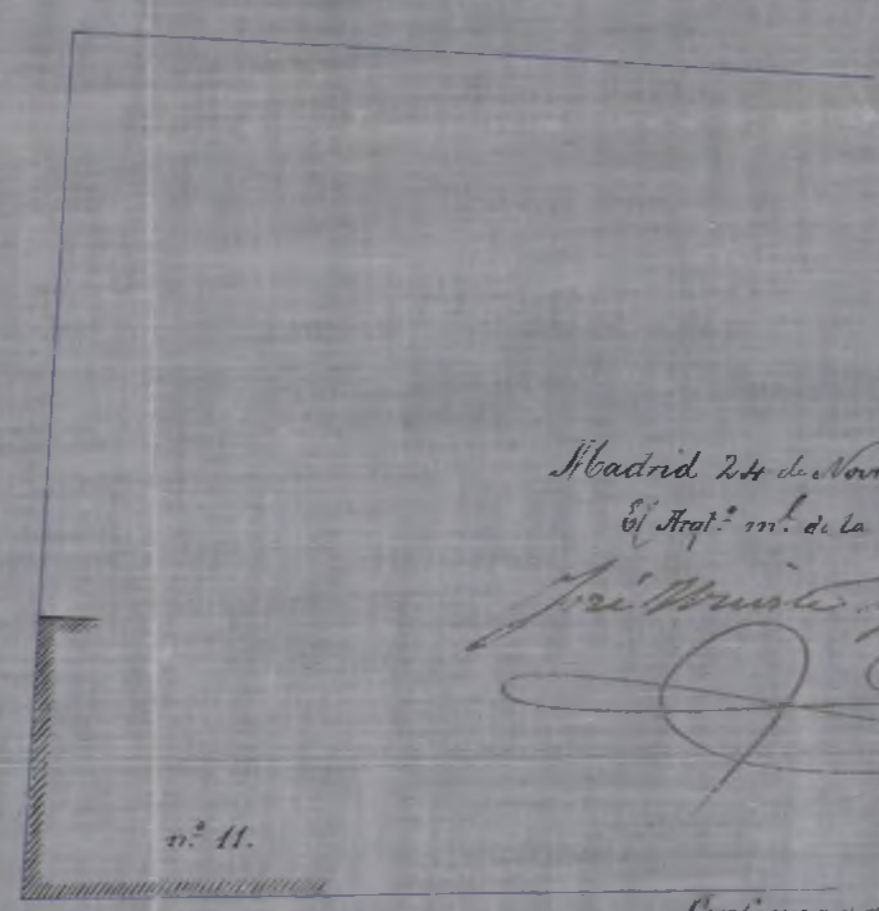 Madrid 24 de Nov
El Arqt.º m.l de la
José
n.º 11.